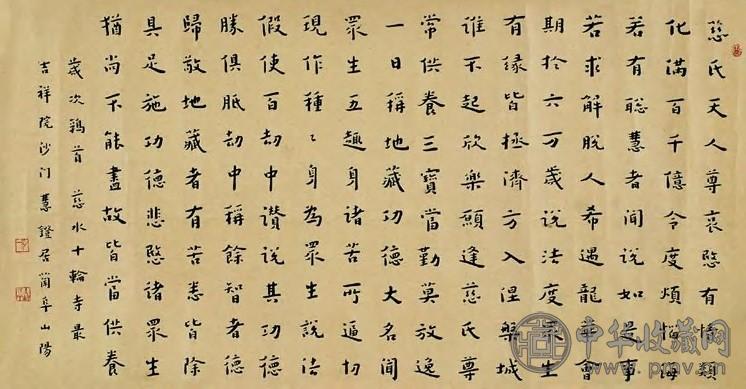 慈氏天人尊哀愍有情類
化滿百千億令度煩惱海
若有聡慧者聞說如是事
若求解脫人希遇龍華會
期於六万歲說法度眾生
有緣皆拯濟方入涅槃城
誰不起欣樂願逢慈氏尊
常供養三寶當勤莫放逸
一日稱地藏功德大名聞
眾生五趣身諸苦所逼切
現作種〻身為眾生說法
假使百劫中讚說其功德
勝俱胝劫中稱餘智者德
歸敬地藏者有苦悉皆除
具足施功德悲愍諸眾生
猶尚不能盡故皆當供養
歲次鶉首 慈水十輪寺最
吉祥院沙门慧鐙居蘭阜山陽
中华收藏网
www.pmv.cn